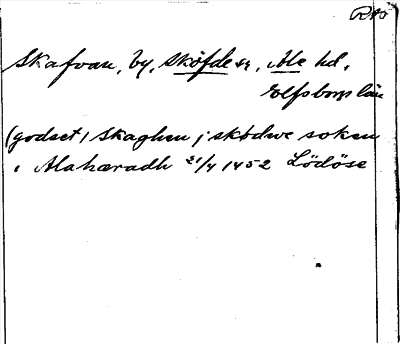 RAö
Skafvan, by, Sköfde sn, Ale hd,
Elfsborgs län
(godset) Skaghen j skødwe soken
i Alahæradh 21/4 1452 Lödöse